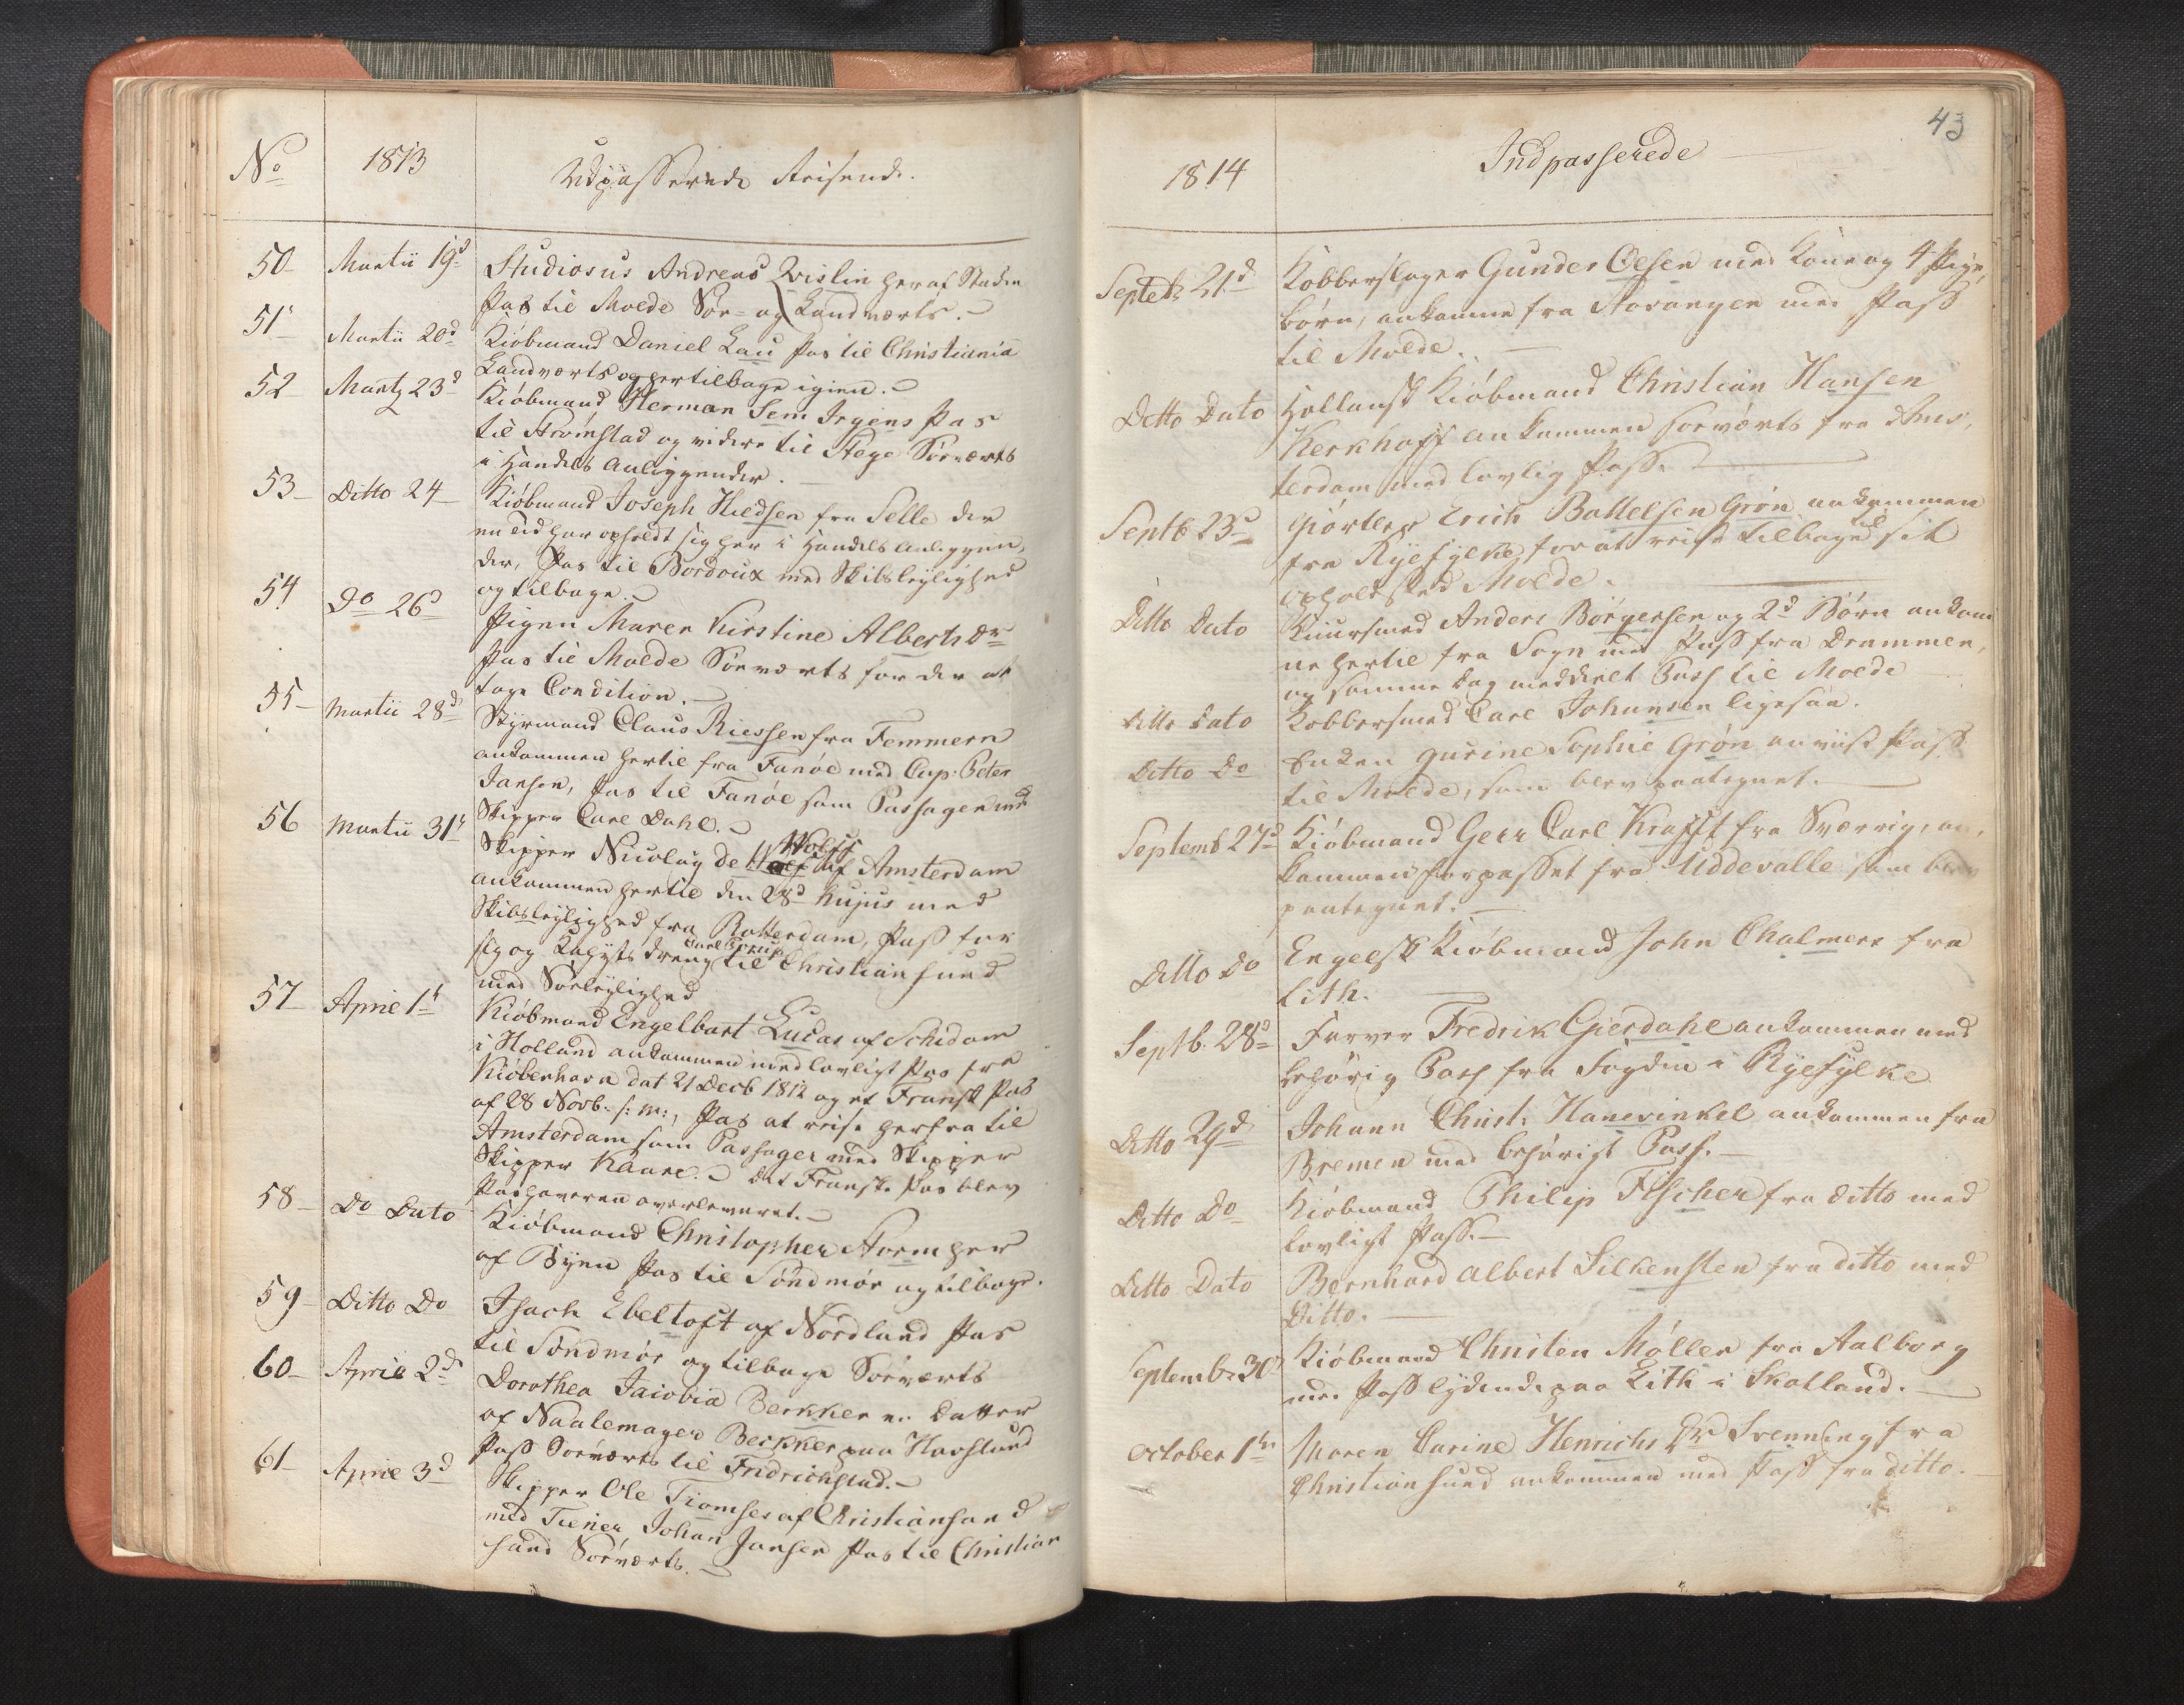 No
1813
Udpasserede Reisende.
50
Martii 19d
Studiosus Andreas Qvislin her af Staden
Pas til Molde Søe- og Landværts.
51
Martii 20d
Kiøbmand Daniel Lau Pas til Christiania
Landværts og her tilbage igien.
52
Martz 23d
Kiøbmand Herman Sem Irgens Pas
til Strømstad og videre til Stege Søeværts
i Handels Anliggender.
53
Ditto 24
Kiøbmand Joseph Hiedsen fra Selle der
en tid har opholdt sig her i Handels Anliggen-
der, Pas til Bordoux med Skibsleylighed
og tilbage.
54
Do 26d
Pigen Maren Kirstine Alberts Dr
Pas til Molde Søeværts for der at
tage Condition.
55
Martii 28d
Styrmand Claus Riessen fra Femmern
ankommen hertil fra Fanøe med Cap: Peter
Jansen, Pas til Fanøe som Passager med
Skipper Carl Dahl.
56
Martii 31t
Skipper Nicolay de Wolff af Amsterdam
ankommen hertil den 28d hujus med
Skibsleylighed fra Rotterdam, Pass for
sig og Kahyts dreng Carl til Christiansund
med Søeleylighed
57
April 1t
Kiøbmand Engelbart Lucas af Schidam
i Holland ankommen med lovligt Pas fra
Kiøbenhavn dat 21 Decb 1812 og et Fransk Pas
af 28 Novb. s: m:, Pas at reise herfra til
Amsterdam som Passager med Skipper
Skipper Kaare. Det Franske Pas blev
Pashaveren overleveret.
58
Do Dato
Kiøbmand Christopher Stormher
af Byen Pas til Søndmør og tilbage.
59
Ditto Do
Isach Ebeltoft af Nordland Pas
til Søndmør og tilbage Søeværts
60
April 2d
Dorothea Jacobia Berkker en Datter
af Naalemager Berkker paa Havslund
Pass Søeværts til Fridrichstad.
61
April 3d
Skipper Ole Tiomses af Christiansand
med Tiener Johan Jansen Pas til Christian
sund Søeværts.
43
1814
Indpasserede
Septeb 21d
Kobberslager Gunder Oelsen med Kone og 4 Pige
børn, ankomne fra Stavangen med Pass
til Molde.
Ditto Dato
Hollansk Kiøbmand Christian Hansen
Kerkhoff ankommen søeværts fra Ams-
terdam med lovlig Pass.
Septb 23d
Giørtler Erich Battelsen Grøn ankommen
fra Ryefylke for at reise tilbage til sit
opholdsted Molde.
Ditto Dato
Kuursmed Anders Børgersen og 2d Børn ankom
ne hertil fra Sogn med Pass fra Drammen,
og samme dag meddeelt Pass til Molde
Ditto Dato
Kobbersmed Carl Johansen ligesaa.
Ditto Do
Enken Gurine Sophie Grøn anviist Pass
til Molde, som blev paategnet.
Septemb 27d
Kiøbmand Geer Carl Krafft fra Sverrig, an-
kommen herpasset fra Uddevalle som blev
paategnet.
Ditto Do
Engelsk Kiøbmand John Chalmers fra
Lith.
Septb. 28d
Farver Fredrik Gjerdahl ankommen med
behørig Pass fra Fogden i Ryefylke
Ditto 29d
Johann Christ: Hanewinkel ankommen fra
Bremen med behørigt Pass.
Ditto Do
Kiøbmand Philip Fischer fra Ditto med
lovligt Pass.
Ditto Dato
Bernhard Albert Silkensten fra ditto med
Ditto.
Septembr 30
Kiøbmand Christen Møller fra Aalborg
med Pass lydende paa Lith i Skotland.
October 1te
Maren Carine Henrichs Dr Svenning fra
Christiansund ankommen med Pass fra ditto.